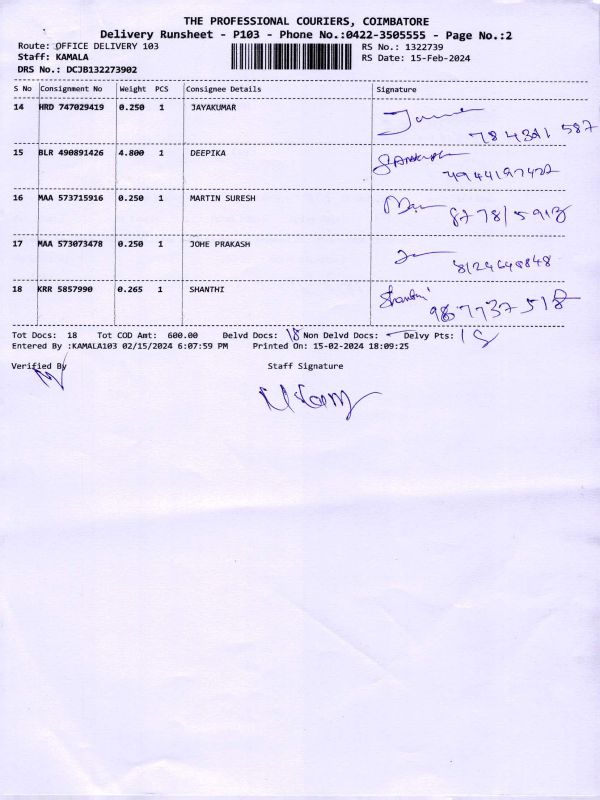 THE PROFESSIONAL COURIERS, COIMBATORE
Delivery Runsheet - P103 - Phone No.:0422-3505555 - Page No.:2
Route: OFFICE DELIVERY 103 RS No.: 1322739
Staff: KAMALA RS Date: 15-Feb-2024
DRS No.: DCJB132273902
S No Consignment No Weight PCS Consignee Details Signature
14 HRD 747029419 0.250 1 JAYAKUMAR
15 BLR 490891426 4.800 1 DEEPIKA
16 MAA 573715916 0.250 1 MARTIN SURESH
17 MAA 573073478 0.250 1 JOHE PRAKASH
8124648848
18 KRR 5857990 0.265 1 SHANTHI Shanthi
9877737518
Tot Docs: 18 Tot COD Amt: 600.00 Delvd Docs: 18 Non Delvd Docs: - Delvy Pts: 18
Entered By :KAMALA103 02/15/2024 6:07:59 PM Printed On: 15-02-2024 18:09:25
Verified By Staff Signature